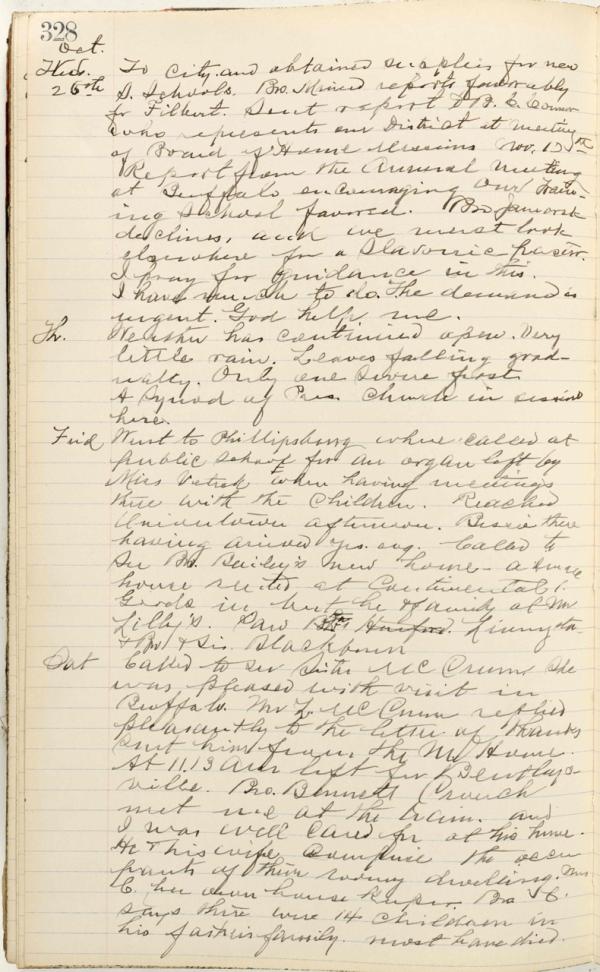 328
Oct.
Wed. To City and obtained supplies for new
26th S. Schools. Bro. Miner reports favorably
for Filbert. Sent report to B. C. Connor
who represents our District at meeting
of Board of Home Missions Nov. 15th
Report from the Annual meeting
at Buffalo encouraging Our Train-
ing School favored. Bro Jamorsk
declines, and we must look
elsewhere for a Slavonic pastor.
I pray for guidance in this.
I have much to do. The demand is
urgent. God help me.
Th. Weather has continued open. Very
little rain. Leaves falling grad-
ually. Only one severe frost.
A Synod of Pres. Church in session
here.
Frid Went to Phillipsburg where called at
public school for an organ left by
Miss when having meetings
there with the children. Reached
Uniontown afternoon. Bessie there
having arrived yes. evg. Called to
see Bro. Bailey's new home - a
house rented at Continental 1.
Goods in but he & family at Mr
Lilly's. Saw Livingston
& Bro & Sis. Blackburn
Sat Called to see Sister McCrum. She
was pleased with visit in
Buffalo. Mr L. McCrum replied
pleasantly to the letter of thanks
sent him from the M. Home.
At 11.13 am left for Bentleys-
ville. Bro. Bennett Crouch
met me at the train. and
I was well cared for at his home.
He & his wife comprise the occu
pants of their roomy dwelling. Mrs
C. her own house keeper. Bro C.
says there were 14 children in
his father's family. most have died.